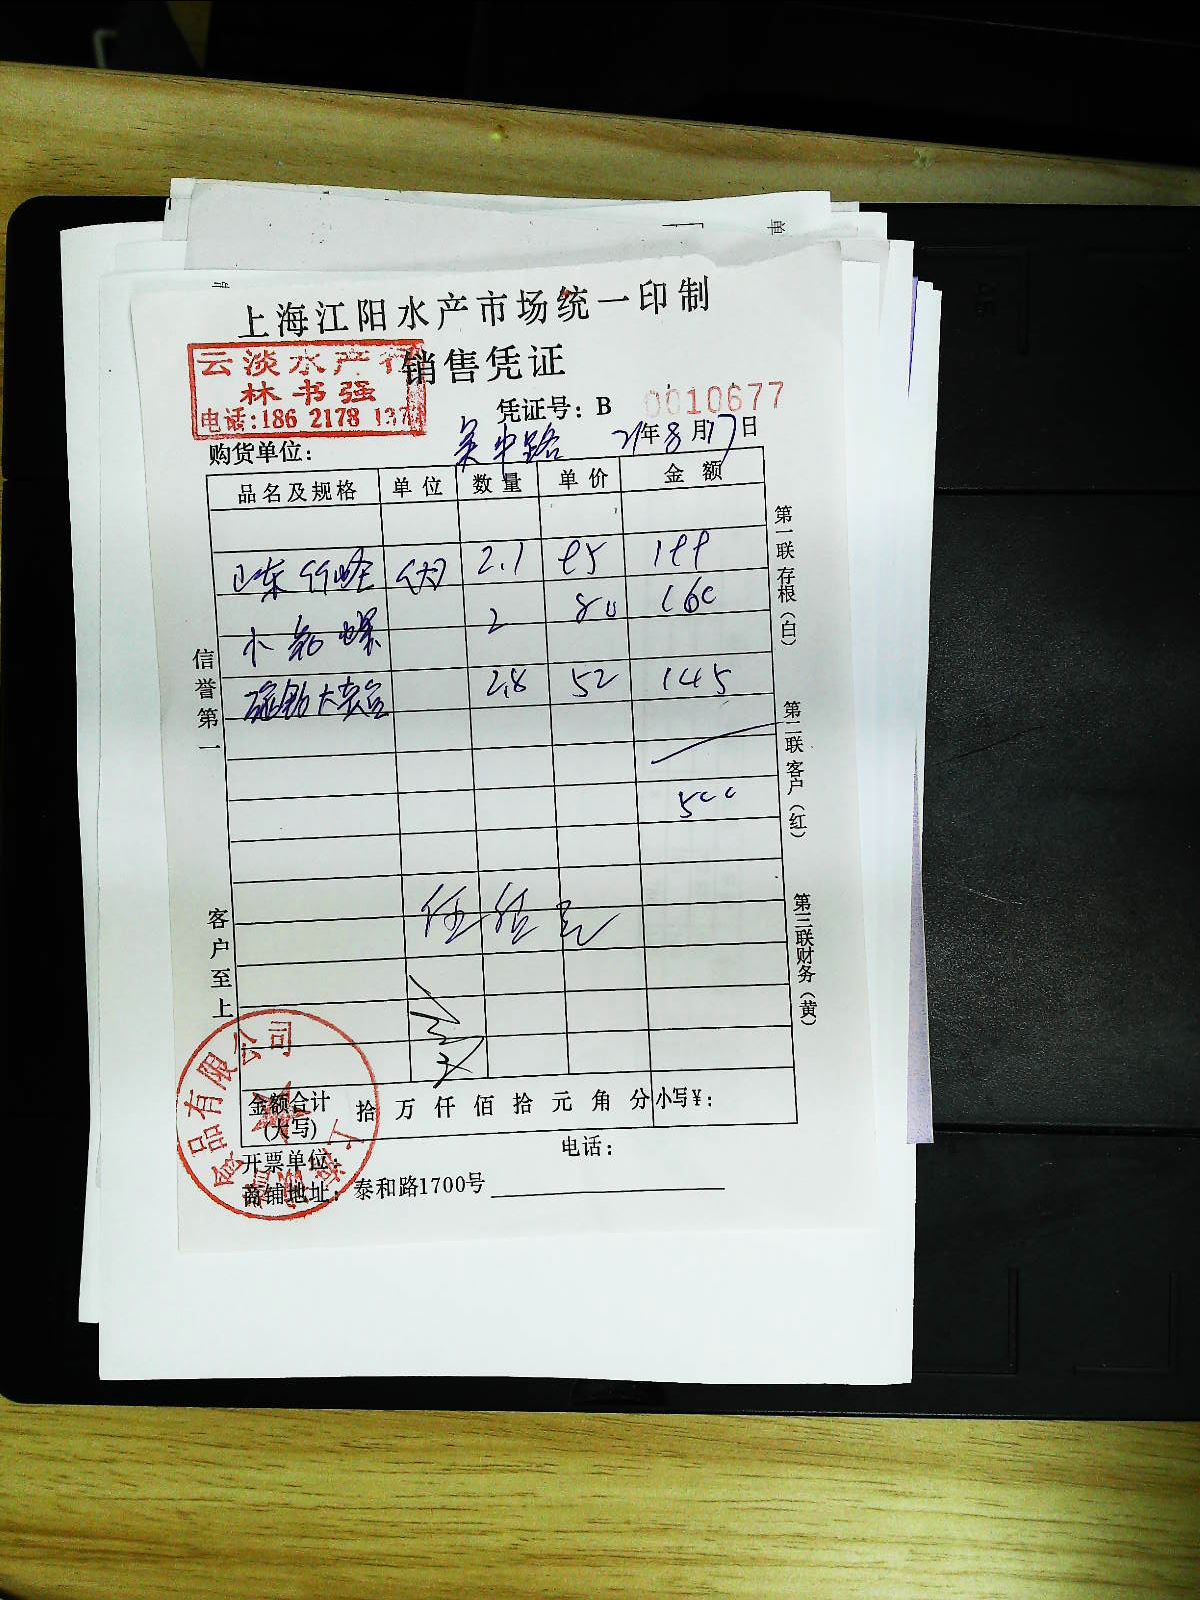 上海江阳水产市场统一印制
销售凭证
云淡水产行
林书强
电话:186 2178 137
凭证号: B 0010677
购货单位: 吴中路 21年8月17日
品名及规格 单位 数量 单价 金额
山东 2.1 95 199
小 螺 2 80 160
大 2.8 52 145
500
信誉第一
客户至上
第一联 存根(白)
第二联 客户(红)
第三联 财务(黄)
金额合计(大写) 拾 万 仟 佰 拾 元 角 分 小写¥:
开票单位: 电话:
商铺地址: 泰和路1700号
品有限公司
上海